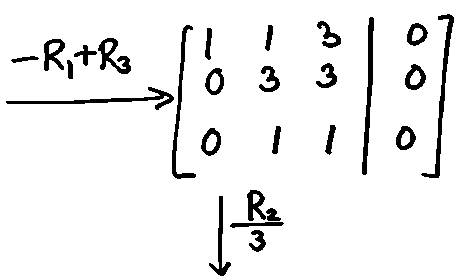 -R₁+R₃
1 1 3 | 0
0 3 3 | 0
0 1 1 | 0
R₂/3